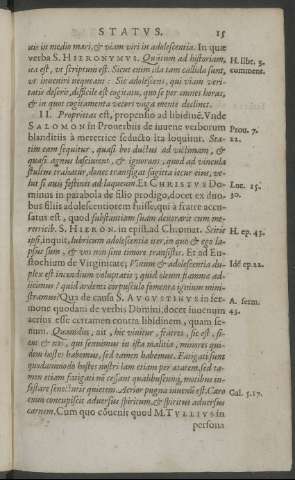 STATVS. 15
uis in medio mari, & viam viri in adolescentia. In quæ
verba S. HIERONYMVS. Quātum ad historiam,
ita est, vt scriptum est. Sicut enim illa tam callida sunt,
vt inueniri nequeant: Sic adolescens, qui viam veri-
tatis deserit, difficile est cogitatu, quò se per omnes horas,
& in quot cogitamenta vecors vaga mente declinet.
H. libr. 5.
comment.
II. Proprietas est, propensio ad libidinē. Vnde
SALOMON in Prouerbiis de iuuene verborum
blanditiis à meretrice seducto ita loquitur. Sta-
tim eam sequitur, quasi bos ductus ad victimam, &
quasi agnus lasciuiens, & ignorans, quod ad vincula
stultus trahatur, donec transfigat sagitta iecur eius, ve-
lut si auis festinet ad laqueum. Et CHRISTVS Do-
minus in parabola de filio prodigo, docet ex duo-
bus filiis adolescentiorem fuisse, qui à fratre accu-
satus est, quod substantiam suam deuorarit cum me-
retricib. S. HIERON. in epist. ad Chromat. Scitis
ipsi, inquit, lubricum adolescentiæ iter, in quo & ego la-
psus sum, & vos non sine timore transistis. Et ad Eu-
stochium de Virginitate; Vinum & adolescentia du-
plex est incendium voluptatis; quid oleum flammæ ad-
iicimus? quid ardenti corpusculo fomenta ignium mini-
stramus? Qua de causa S. AVGVSTINVS in ser-
mone quodam de verbis Domini, docet iuuenum
acrius esse certamen contra libidinem, quam se-
num. Quamdiu, ait, hic viuitur, fratres, sic est, si-
cut & nos, qui senuimus in ista militia, minores qui-
dem hostes habemus, sed tamen habemus. Fatigati sunt
quodammodo hostes nostri iam etiam per ætatem, sed ta-
men etiam fatigati nō cessant qualibuscunq; motibus in-
festare senectutis quietem. Acrior pugna iuuenū est. Caro
enim concupiscit aduersus spiritum, & spiritus aduersus
carnem. Cum quo cōuenit quod M. TVLLIVS in
persona
Prou. 7.
22.
Luc. 15.
30.
H. ep. 43.
Idē ep. 22.
A. serm.
43.
Gal. 5. 17.